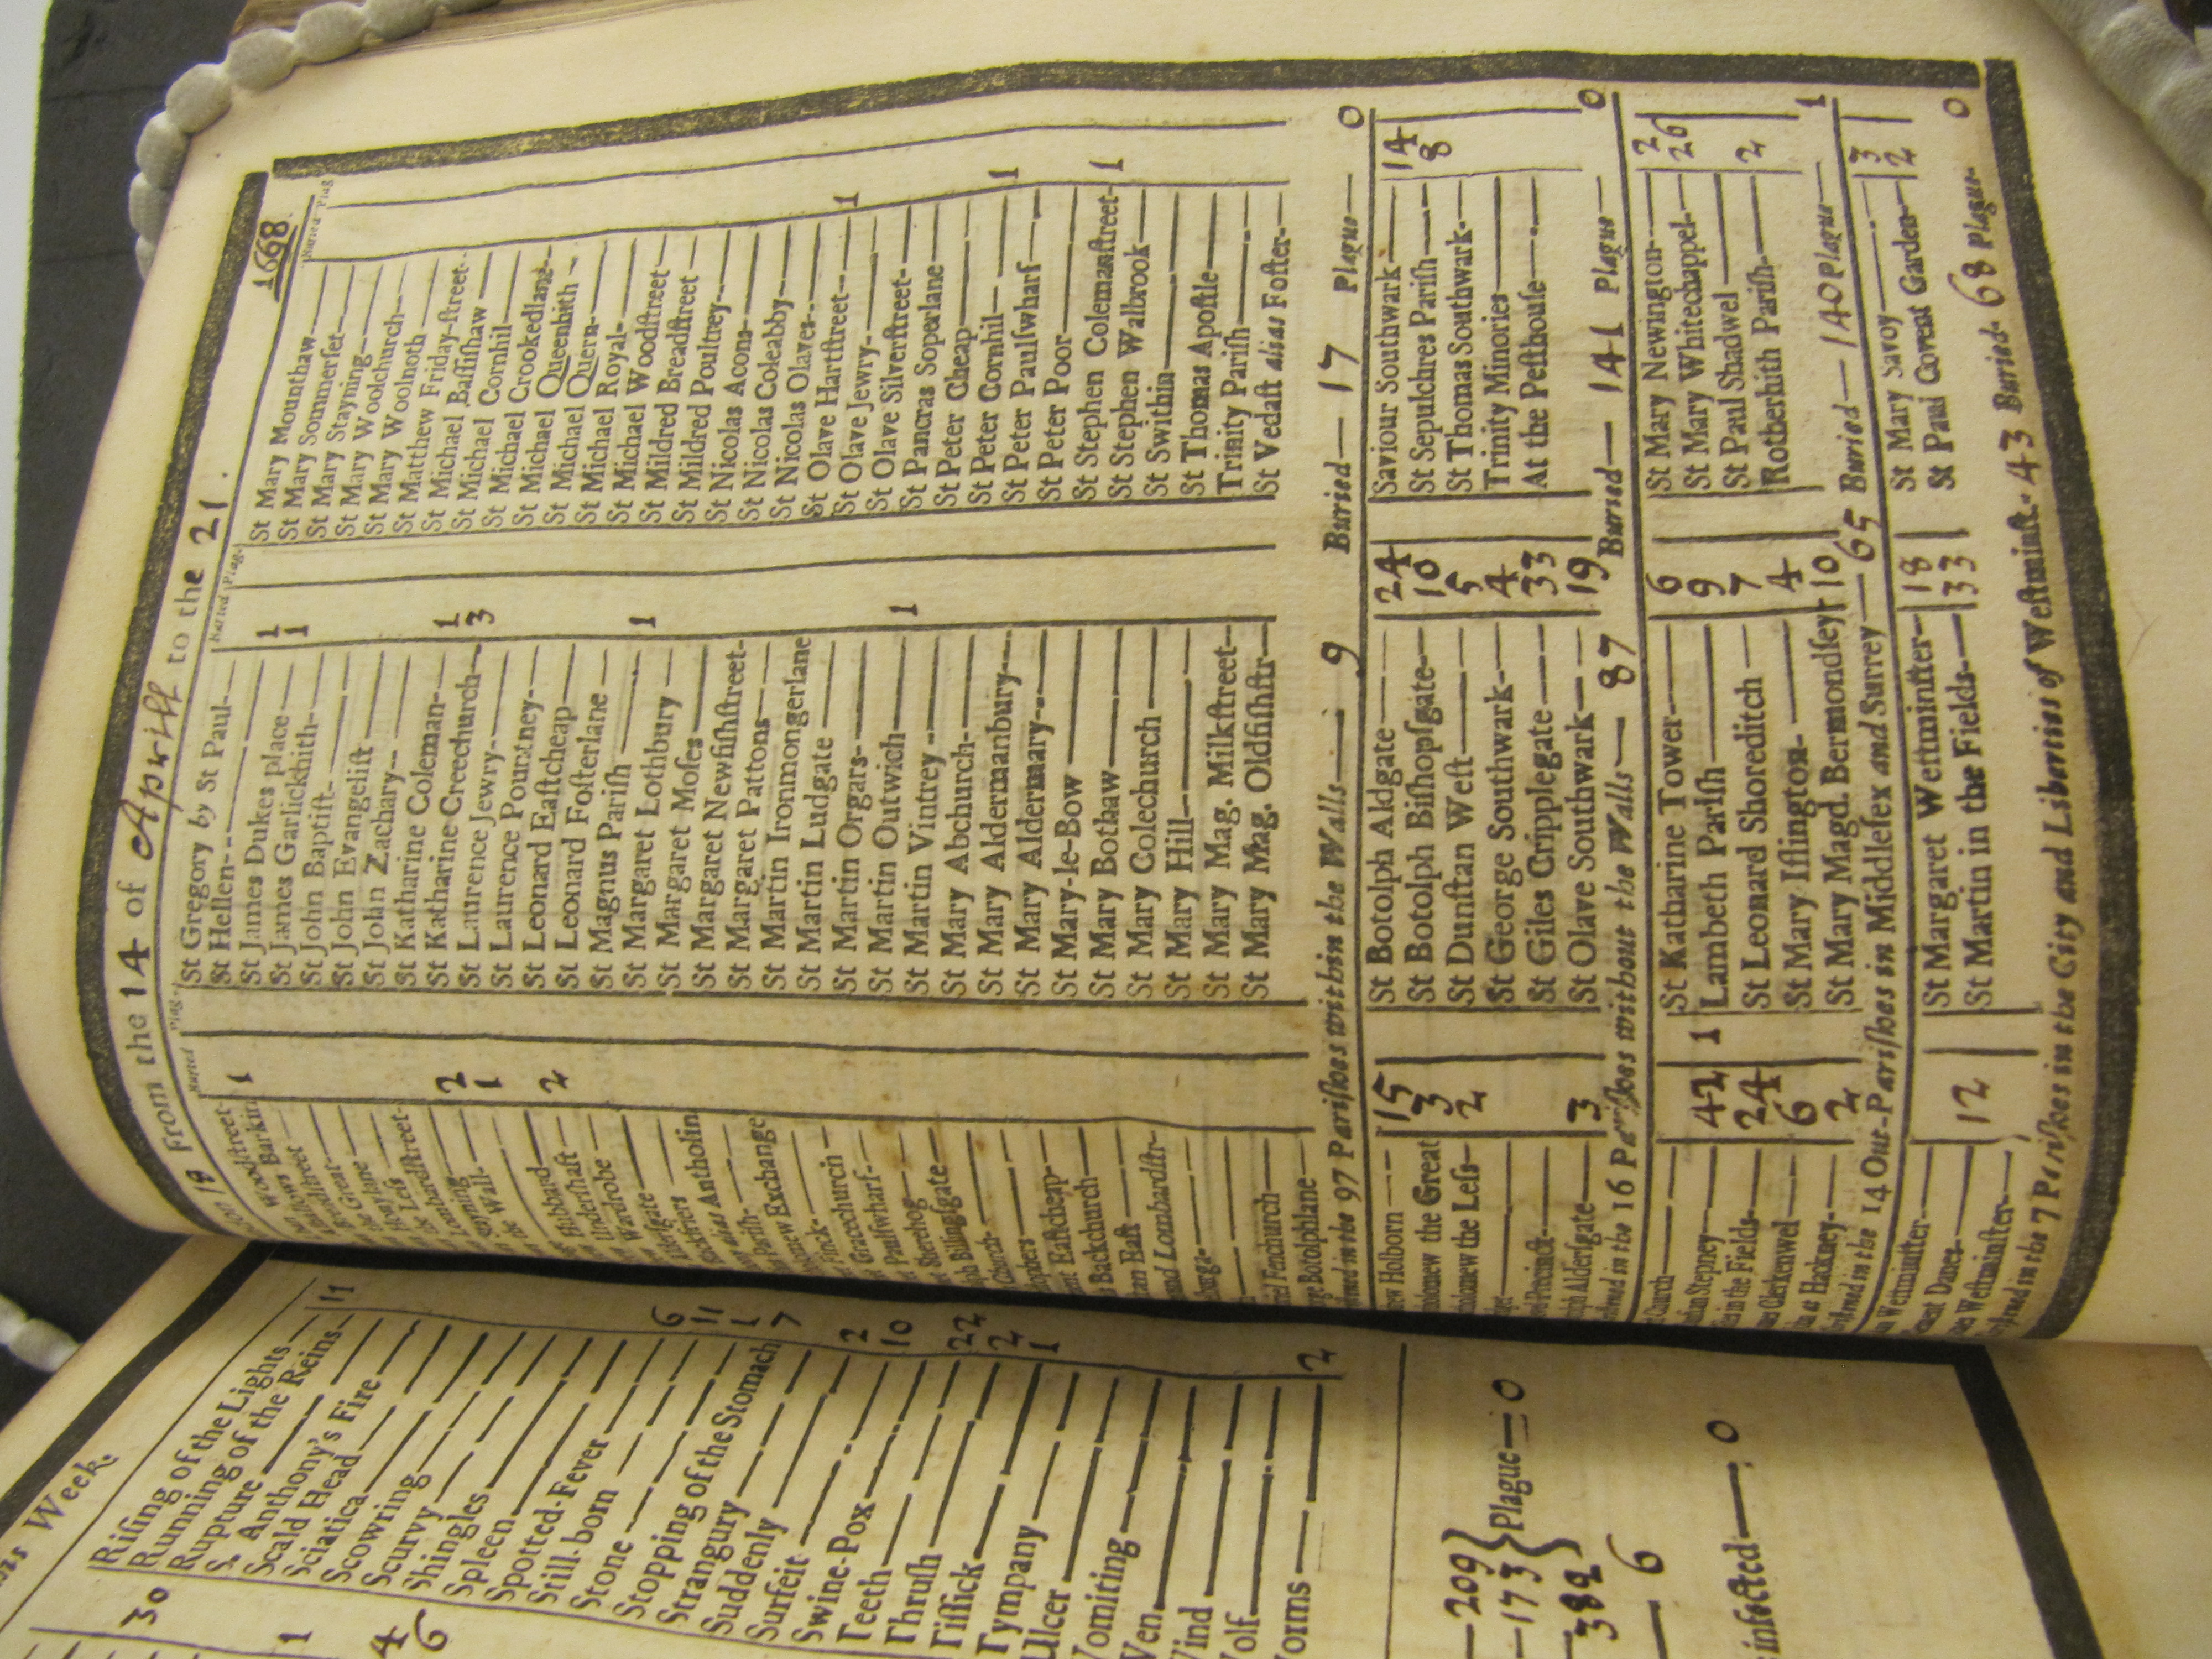 18 From the 14 of Aprill to the 21. 1668
Buried Plag.
Woodſtreet-
Barkin 1
Breadſtreet
Great
Honylane
Leſs
Lombardſtreet-
2
Wall- 1
Hubbard 2
Underſhaft
Wardrobe
Alderſgate
alias Antholin
Pariſh-
Exchange
Finck-
Gracechurch
Paulſwharf-
Sherehog
Billingſgate
Church-
Eaſtcheap
Backchurch
Eaſt
Lombardſtr-
Fenchurch
Botolphlane
Buried Plag.
St Gregory by St Paul
St Hellen-
St James Dukes place 1
St James Garlickhith 1
St John Baptiſt
St John Evangeliſt
St John Zachary
St Katharine Coleman
St Katharine Creechurch 1
St Laurence Jewry 3
St Laurence Pountney
St Leonard Eaſtcheap
St Leonard Foſterlane
St Magnus Pariſh
St Margaret Lothbury 1
St Margaret Moſes
St Margaret Newfiſhſtreet-
St Margaret Pattons
St Martin Ironmongerlane
St Martin Ludgate
St Martin Orgars
St Martin Outwich
St Martin Vintrey 1
St Mary Abchurch
St Mary Aldermanbury
St Mary Aldermary
St Mary-le-Bow
St Mary Bothaw
St Mary Colechurch
St Mary Hill
St Mary Mag. Milkſtreet-
St Mary Mag. Oldfiſhſtr
Buried Plag
St Mary Mounthaw
St Mary Sommerſet
St Mary Stayning
St Mary Woolchurch
St Mary Woolnoth
St Matthew Friday-ſtreet
St Michael Baſſiſhaw
St Michael Cornhil
St Michael Crookedlane
St Michael Queenhith
St Michael Quern
St Michael Royal
St Michael Woodſtreet
St Mildred Breadſtreet
St Mildred Poultney
St Nicolas Acons
St Nicolas Coleabby
St Nicolas Olaves
St Olave Hartſtreet 1
St Olave Jewry
St Olave Silverſtreet
St Pancras Soperlane
St Peter Cheap
St Peter Cornhil 1
St Peter Paulſwharf
St Peter Poor
St Stephen Colemanſtreet 1
St Stephen Walbrook
St Swithin
St Thomas Apoſtle
Trinity Pariſh
St Vedaſt alias Foſter
in the 97 Pariſhes within the Walls— 9 Buried— 17 Plague— 0
Holborn — 15
the Great 3
the Leſs 2
Precinct
Alderſgate 3
St Botolph Aldgate 24
St Botolph Biſhopſgate 10
St Dunſtan Weſt 5
St George Southwark 4
St Giles Cripplegate 33
St Olave Southwark 19
Saviour Southwark 14
St Sepulchres Pariſh 8
St Thomas Southwark
Trinity Minories
At the Peſthouſe
in the 16 Pariſhes without the Walls— 87 Buried— 141 Plague— 0
Church
Stepney 42 1
in the Fields 24
Clerkenwel 6
at Hackney 2
St Katharine Tower 6
Lambeth Pariſh 9
St Leonard Shoreditch 7
St Mary Iſlington 4
St Mary Magd. Bermondſey 10
St Mary Newington 2
St Mary Whitechappel 26
St Paul Shadwel
Rotherhith Pariſh 2
in the 14 Out-Pariſhes in Middleſex and Surrey— 65 Buried— 140 Plague— 1
Weſtminſter
Danes 12
Weſtminſter-
St Margaret Weſtminſter 18
St Martin in the Fields 33
St Mary Savoy 3
St Paul Covent Garden 2
in the 7 Pariſhes in the City and Liberties of Weſtminſt. 43 Buried 68 Plague 0
Week.
30
1
4
6
Riſing of the Lights 11
Running of the Reins
Rupture
S. Anthony's Fire
Scald Head
Sciatica
Scowring
Scurvy
Shingles
Spleen
Spotted-Fever 6
Still-born 11
Stone 1
Stopping of the Stomach 7
Strangury
Suddenly 2
Surfeit 10
Swine-Pox
Teeth 22
Thruſh 2
Tiſſick 1
Tympany
Ulcer
Vomiting
Wen
Wind
Wolf
Worms 2
209
173 Plague— 0
382
6
infected— 0